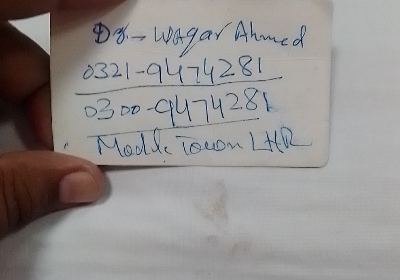 Dr. Waqar Ahmed
0321-9474281
0300-9474281
Modle Town LHR